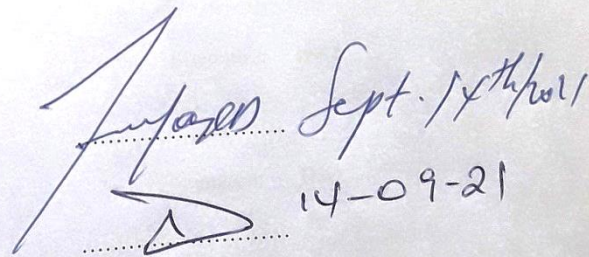 Sept. 14th/2021
14-09-21